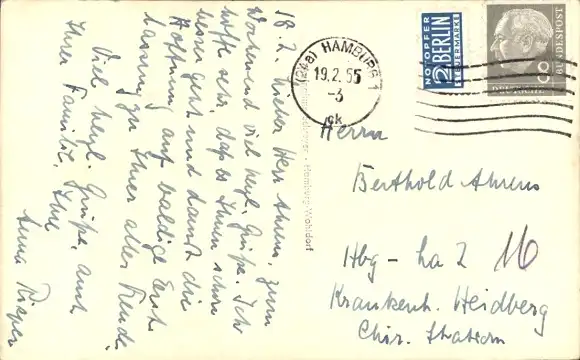 18.2. Lieber Herr Ahrens, zum
Wochenend viel herzl. Grüße. Ich
hoffe sehr, daß es Ihnen schon
besser geht und damit die
Hoffnung auf baldige Entlassung zu Ihrer aller Freude.
Viel herzl. Grüße, auch
Ihrer Familie, Ihre
Anna Pieper
NOTOPFER
2 BERLIN
STEUERMARKE
DEUTSCHE
BUNDESPOST
(24a) HAMBURG 1
19.2.55
-3
ck
Hamburg-Wohldorf
Herrn
Berthold Ahrens
Hbg - La 2
16
Krankenh. Heidberg
Chir. Station